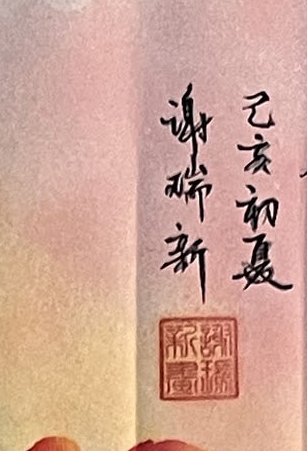 己亥初夏
谢瑞新
謝瑞
新畫